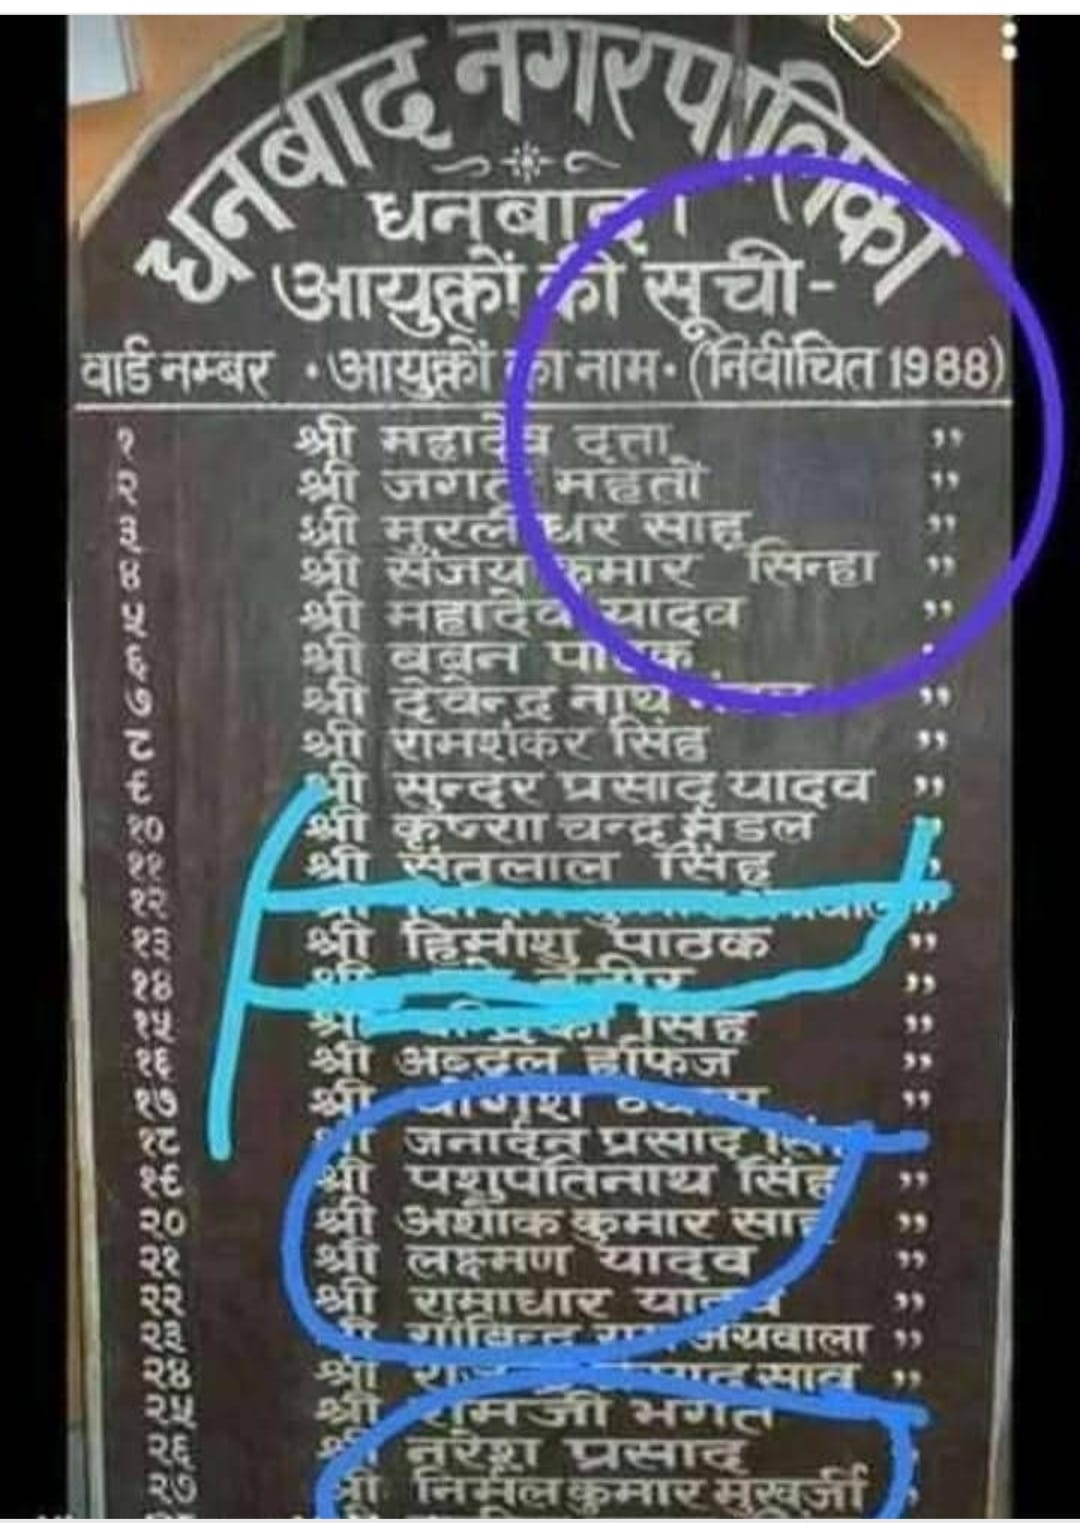 धनबाद नगरपालिका
धनबाद।
आयुक्तों की सूची-
वार्ड नम्बर • आयुक्तों का नाम • (निर्वाचित 1988)
१ श्री महादेव दत्ता ,,
२ श्री जगत महतो ,,
३ श्री मुरलीधर साहू ,,
४ श्री संजय कुमार सिन्हा ,,
५ श्री महादेव यादव ,,
६ श्री बबन पाठक
७ श्री देवेन्द्र नाथ ,,
८ श्री रामशंकर सिंह ,,
९ श्री सुन्दर प्रसाद यादव ,,
१० श्री कृष्णा चन्द्र मंडल ,,
११ श्री संतलाल सिंह ,,
१२ श्री ,,
१३ श्री हिमांशु पाठक ,,
१४ श्री ,,
१५ श्री सिंह ,,
१६ श्री अब्दुल हफिज ,,
१७ श्री ,,
१८ श्री जनार्दन प्रसाद
१९ श्री पशुपतिनाथ सिंह ,,
२० श्री अशोक कुमार साह ,,
२१ श्री लक्ष्मण यादव ,,
२२ श्री रामाधार यादव ,,
२३ श्री गोबिन्द राम अग्रवाला ,,
२४ श्री साव ,,
२५ श्री रामजी भगत
२६ श्री नरेश प्रसाद ,
२७ श्री निर्मल कुमार मुखर्जी ,